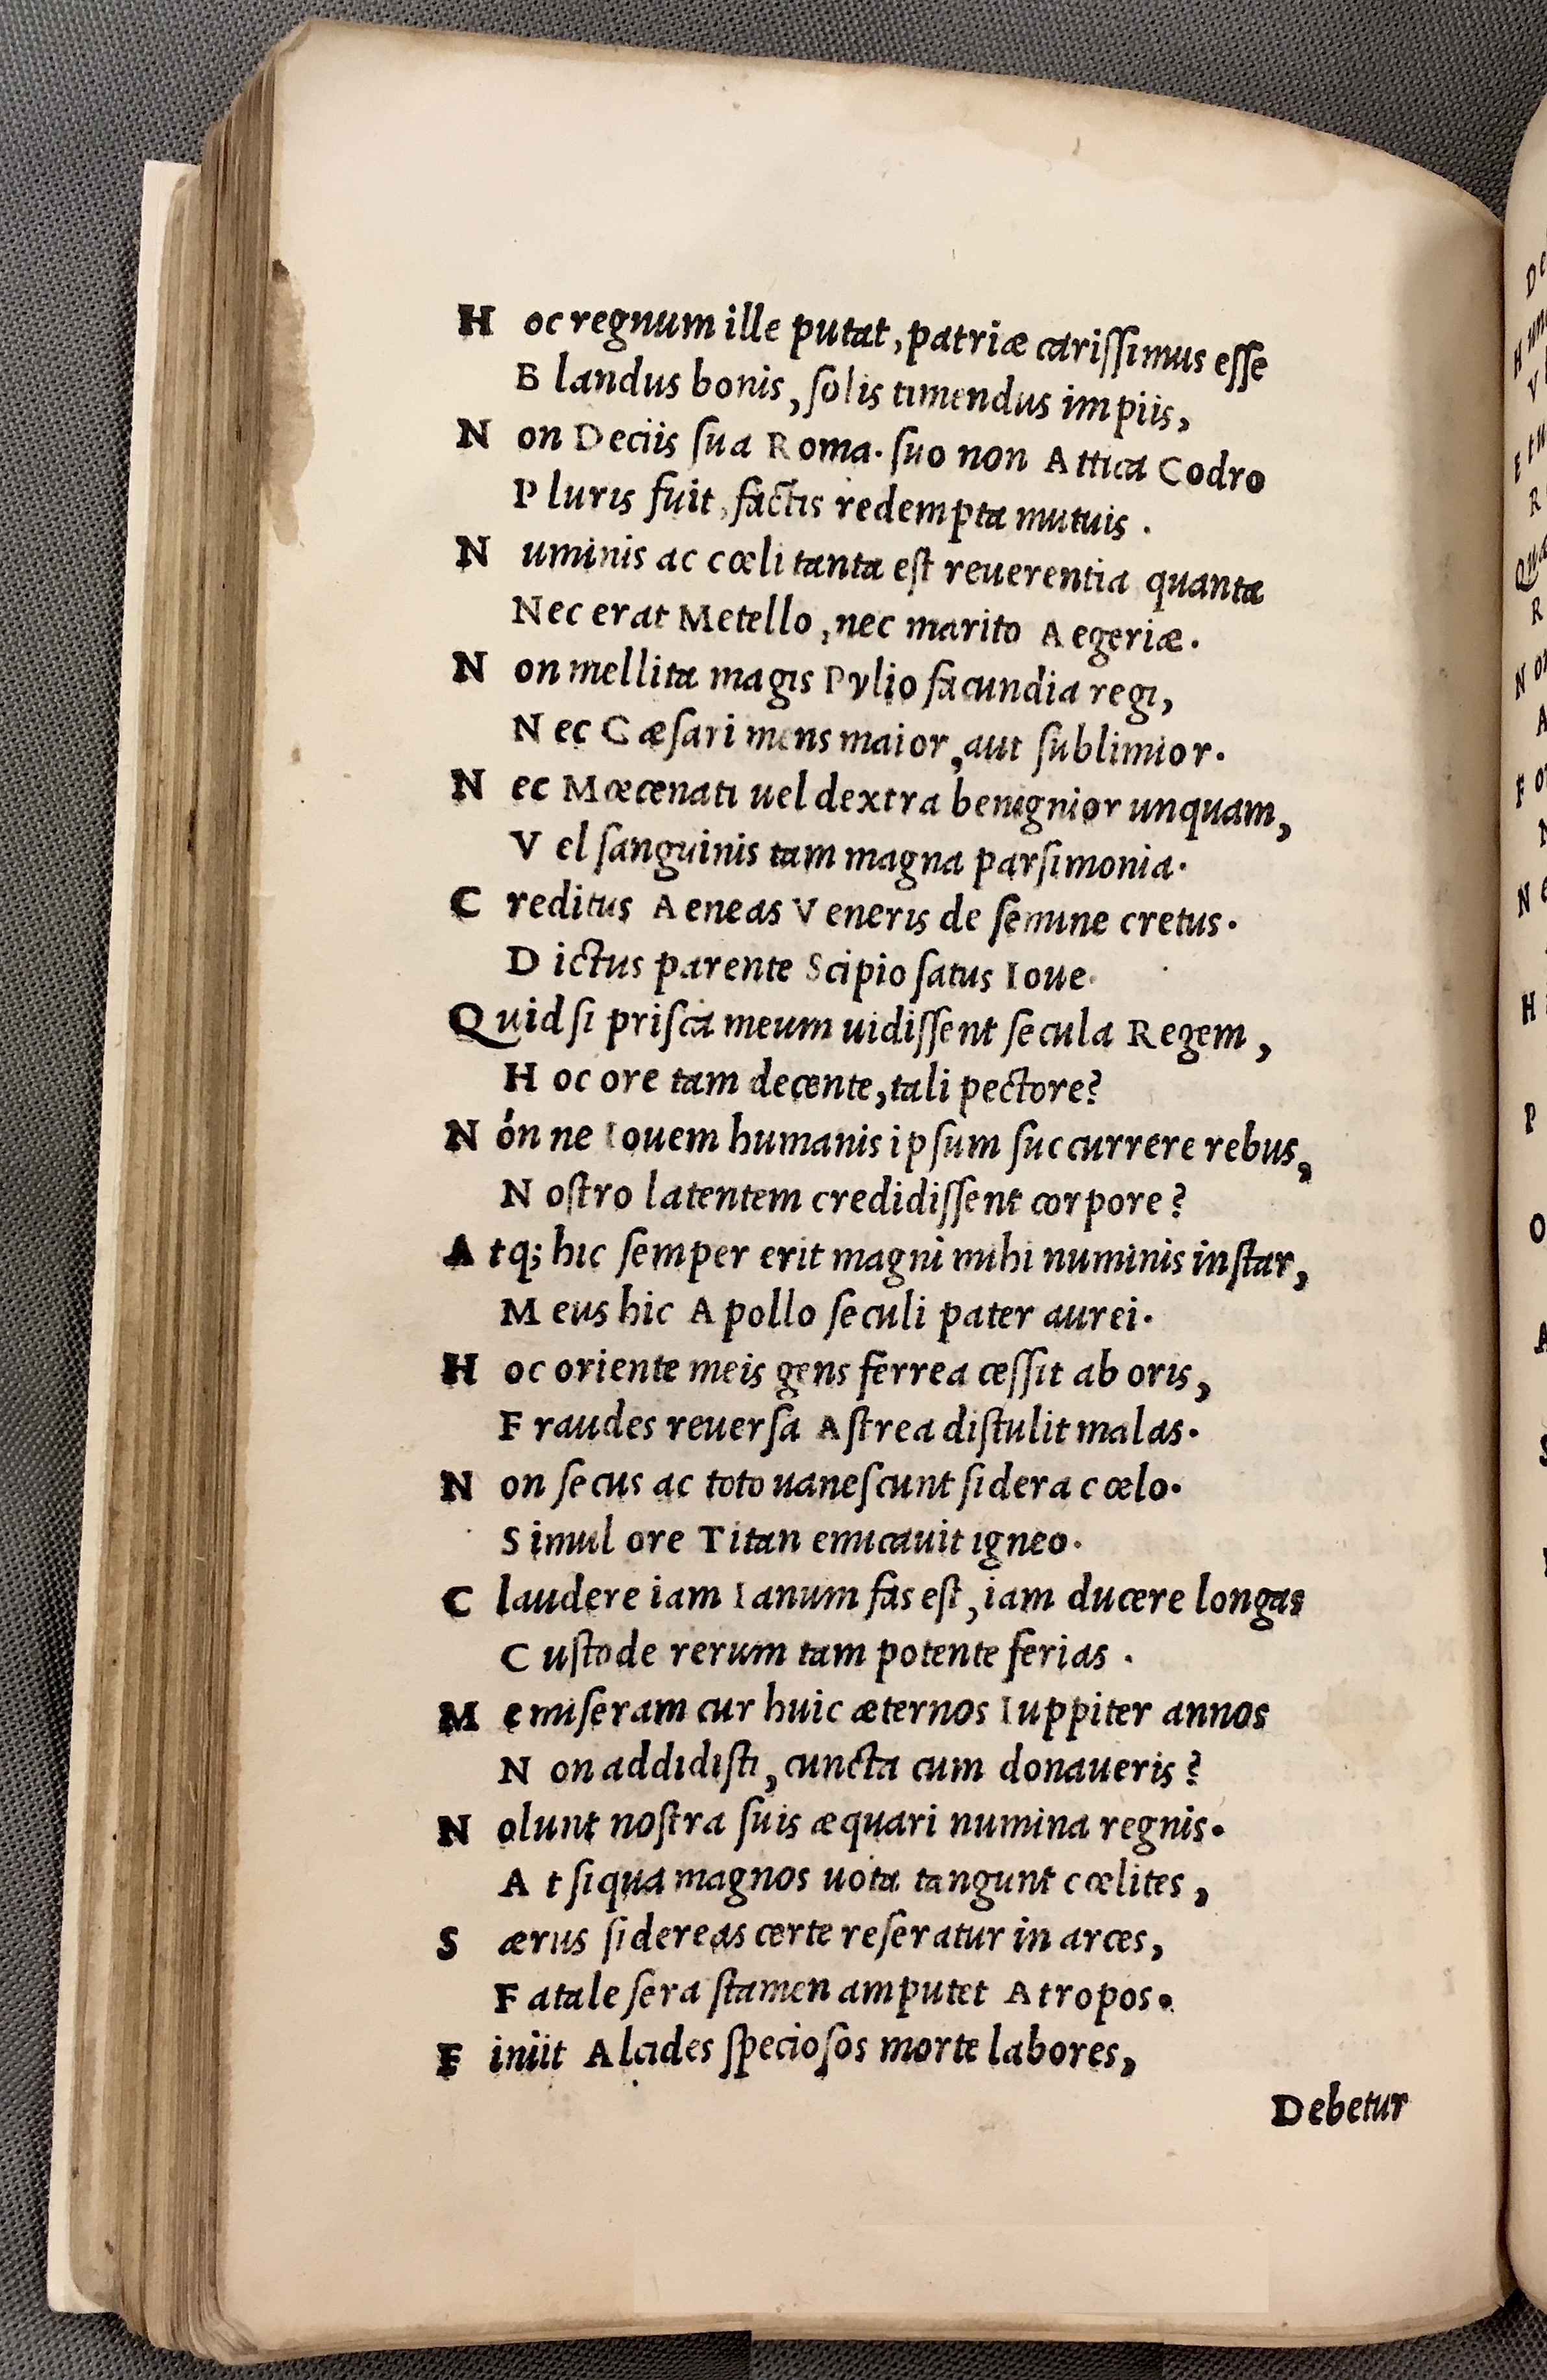 Hoc regnum ille putat, patriæ carissimus esse
Blandus bonis, solis timendus impiis,
Non Deciis sua Roma. suo non Attica Codro
Pluris fuit, factis redempta mutuis.
Numinis ac cœli tanta est reuerentia quanta
Nec erat Metello, nec marito Aegeriæ.
Non mellita magis Pylio facundia regi,
Nec Cæsari mens maior, aut sublimior.
Nec Mœcenati uel dextra benignior unquam,
Vel sanguinis tam magna parsimonia.
Creditus Aeneas Veneris de semine cretus.
Dictus parente Scipio satus Ioue.
Quid si prisca meum uidissent secula Regem,
Hoc ore tam decente, tali pectore?
Nón ne Iouem humanis ipsum succurrere rebus,
Nostro latentem credidissent corpore?
Atq; hic semper erit magni mihi numinis instar,
Meus hic Apollo seculi pater aurei.
Hoc oriente meis gens ferrea cessit ab oris,
Fraudes reuersa Astrea distulit malas.
Non secus ac toto uanescunt sidera cœlo.
Simul ore Titan emicauit igneo.
Claudere iam Ianum fas est, iam ducere longas
Custode rerum tam potente ferias.
Me miseram cur huic æternos Iuppiter annos
Non addidisti, cuncta cum donaueris?
Nolunt nostra suis æquari numina regnis.
At si qua magnos uota tangunt cœlites,
Særus sidereas certe referatur in arces,
Fatale sera stamen amputet Atropos.
Finiit Alcides speciosos morte labores,
Debetur